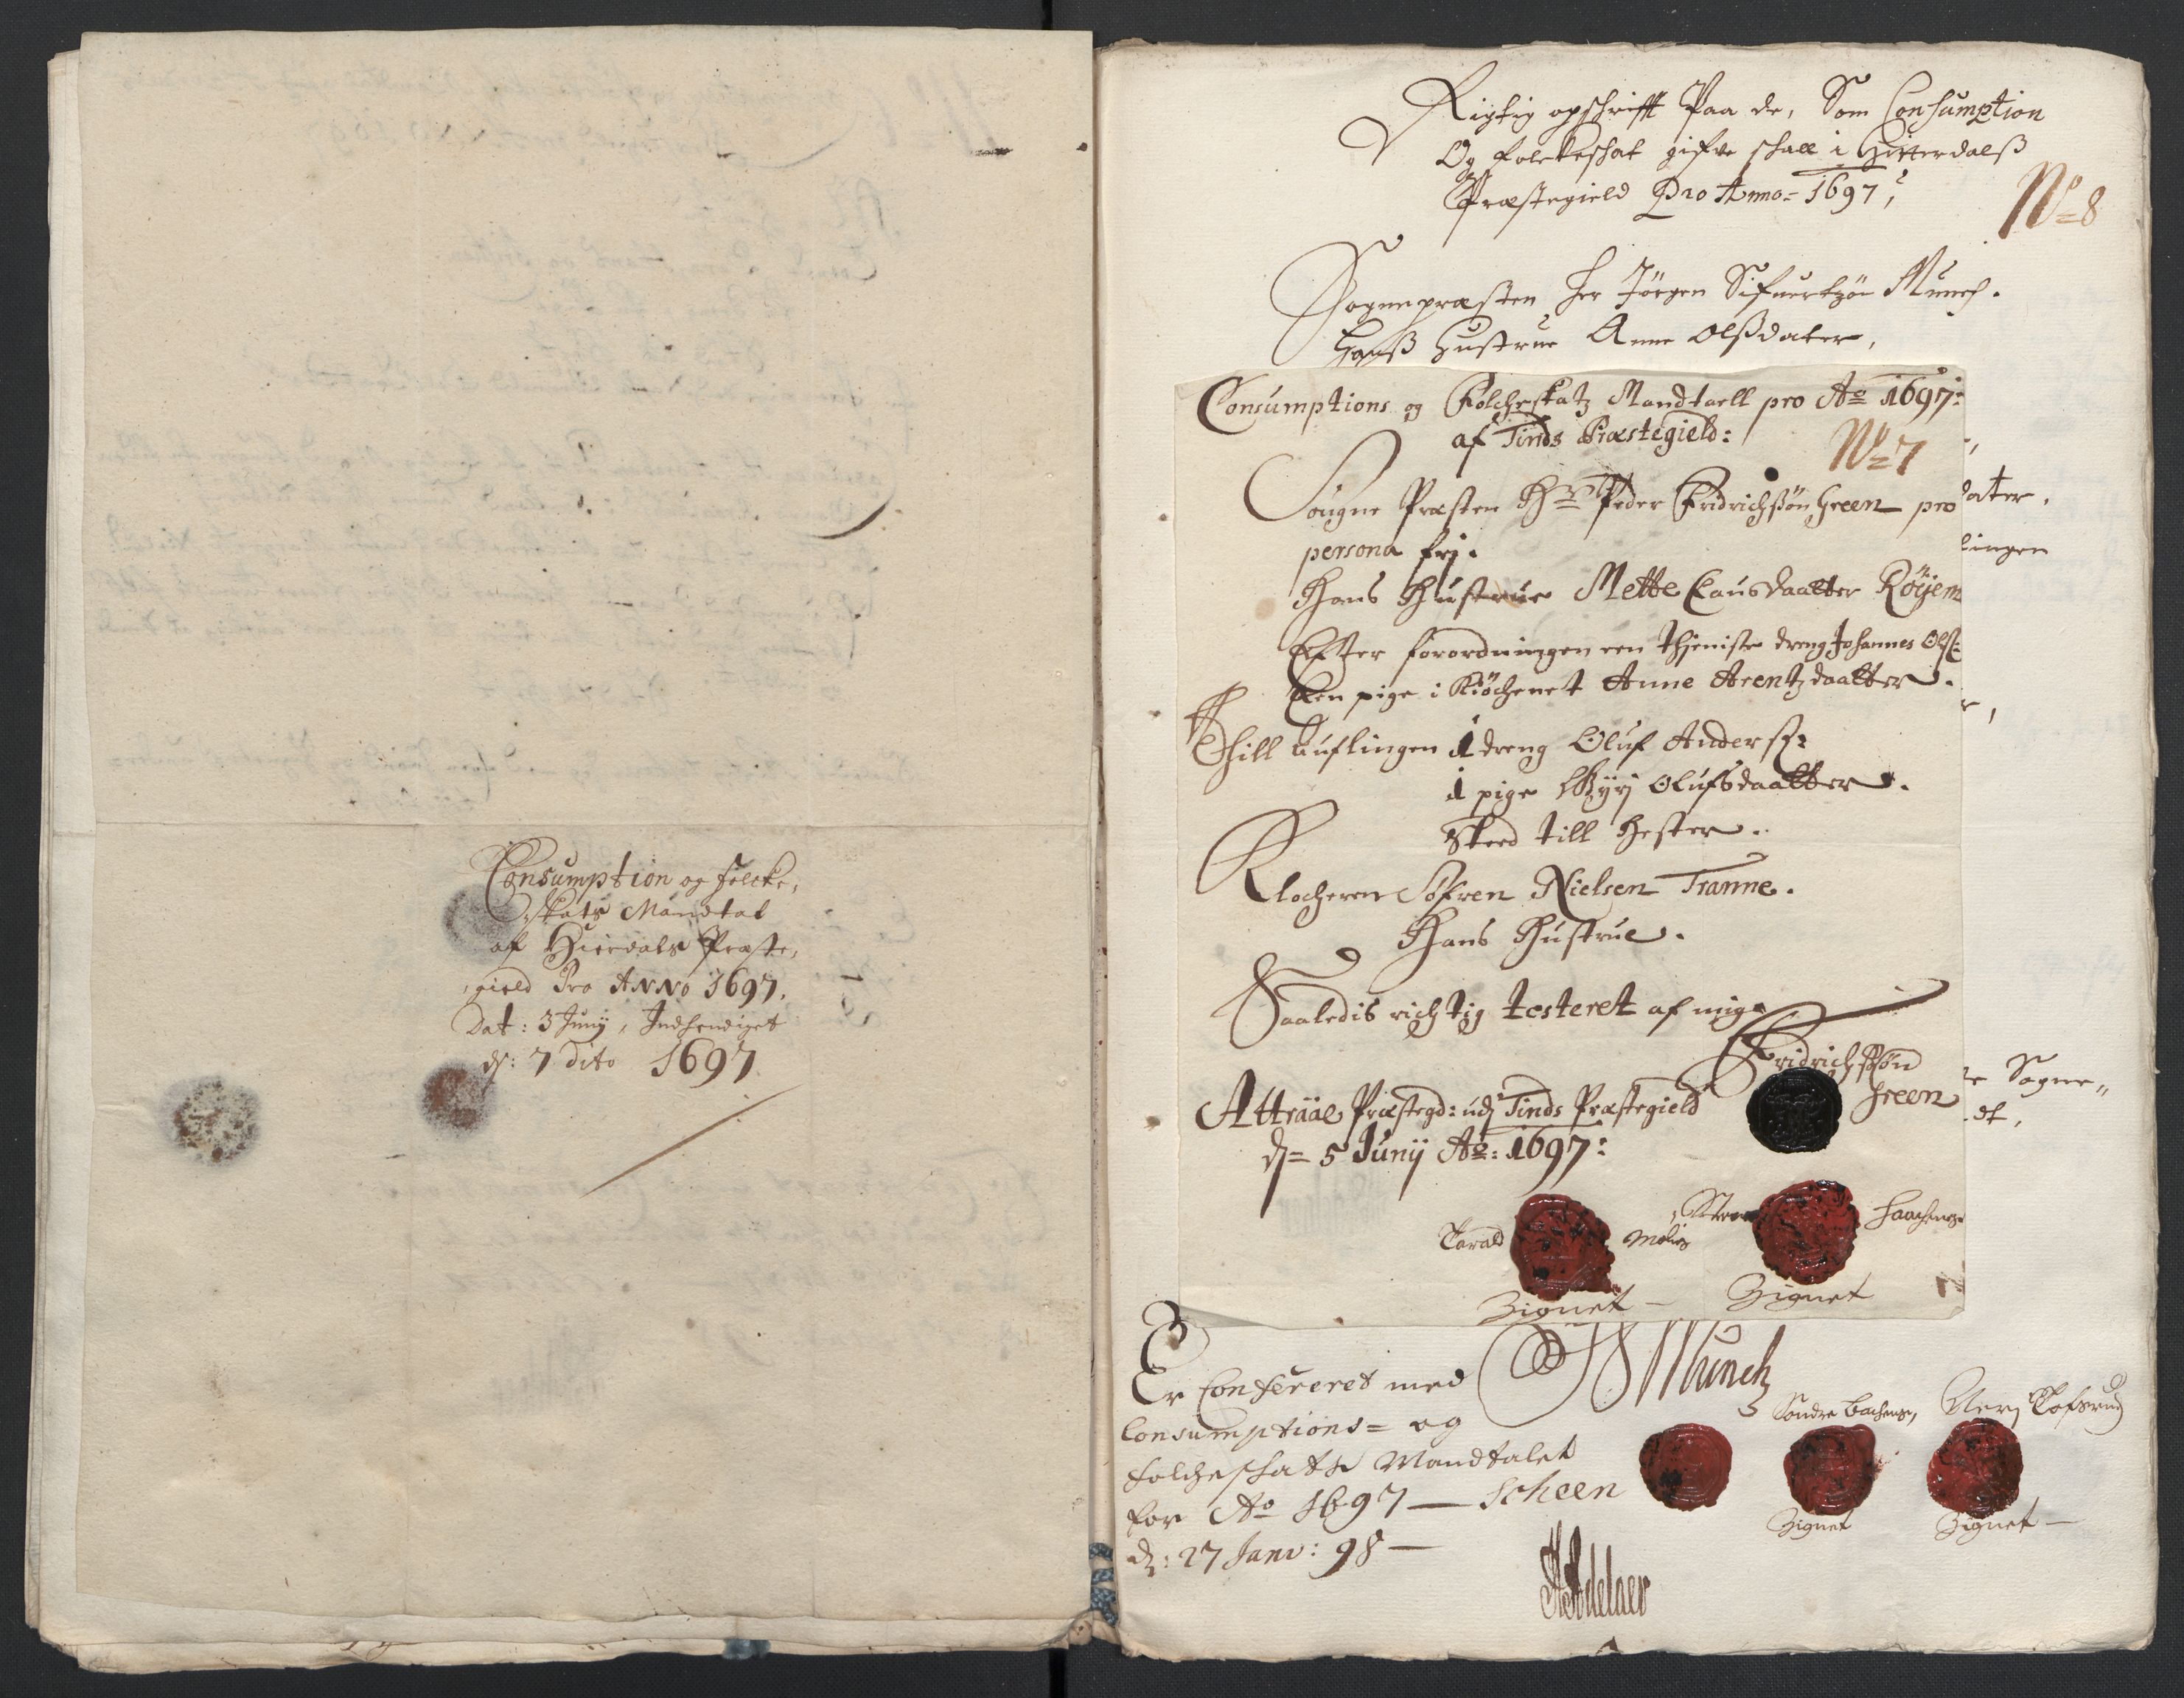 Consumption og folcke,
skats Mandtal
af Hierdals Præste,
gield Pro ANNO 1697.
Dat: 3 Junij, Indhendiget
dj: 7 dito 1697
Rigtig opschrifft Paa de, Som Consumption
Og folckeschat gifve schall i Hitterdalß
Præstegield Pro Anno = 1697,
No 8
Sognepræsten Her Jörgen Sifuertzön Munch.
Hanß Hustrue Anne Olßdater,
Consumptions og Folcheskatz Mandtaell pro Ao 1697:
af Tinds Præstegield:
No 7
Sougne Præsten Hr Peder Fridrichßön Green pro
persona frj.
Hans Hustrue Mette Clausdaatter Röyem
Efter forordningen een thjeniste dreng Johannes Olß:
Een pige i Kiöchenet Anne Arentzdaatter.
Thill auflingen 1 dreng Oluf Anderß:
1 pige Gyrj Olufsdaatter.
Sked till Hester.
Klocheren Söfren Nielsen Tranne.
Hans Hustrue.
Saaledis richtig testeret af mig
Fridrichßön
Green
Attraae Præstegd: udj Tinds Præstegield
dj = 5 Junij Ao: 1697:
Tarald
Zignet
Zignet
dater,
lingen
r,
Sogne,,
dt,
Er Confereret med
Consumptions = og
folcheschats Mandtalet
for Ao 1697 — Scheen
d: 27 Janv: 98 —
JS Munch
Söndre
Zignet
Zignet —
HAdelaer